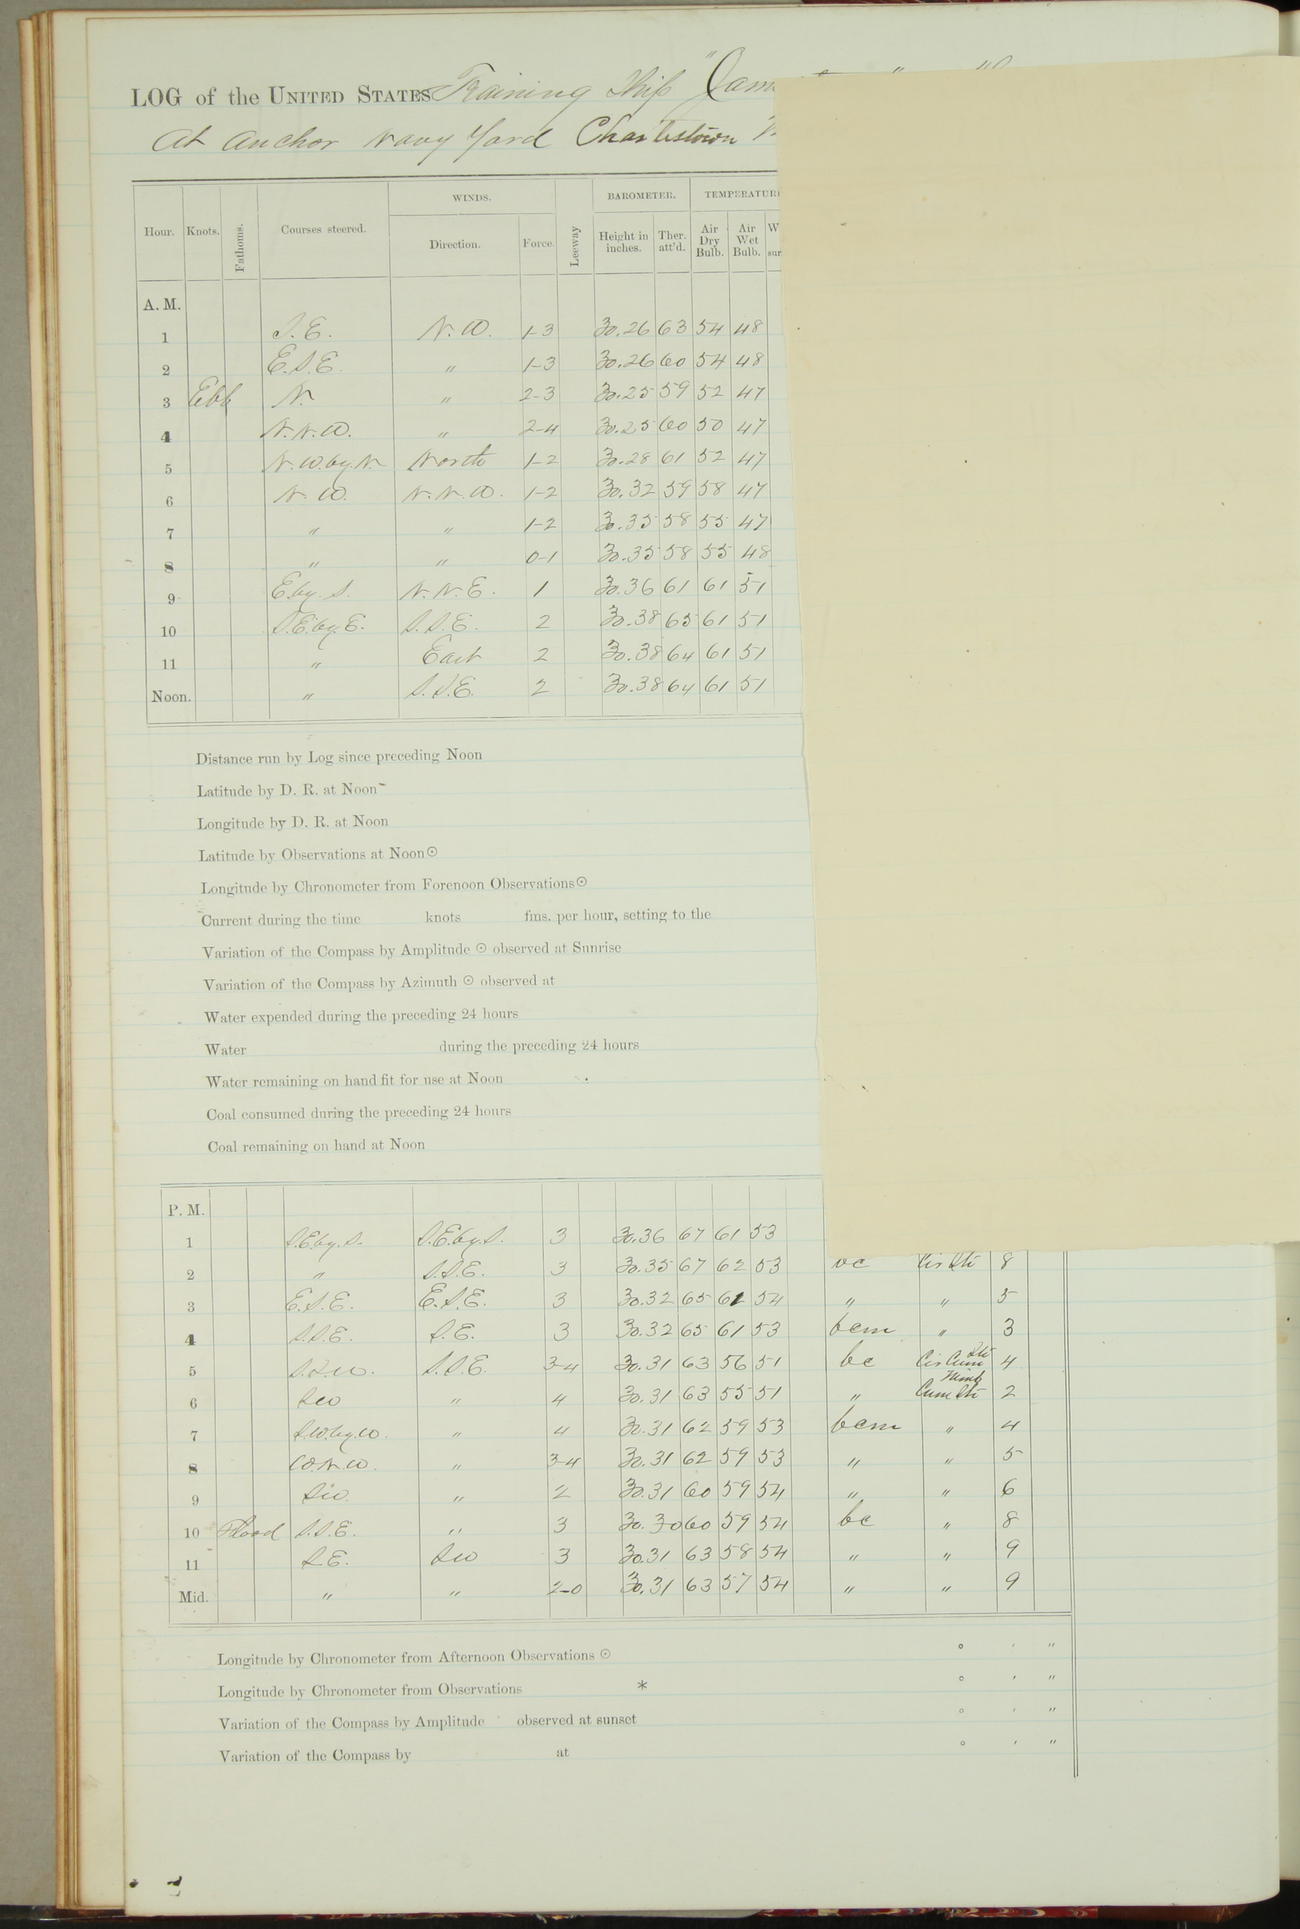 LOG of the UNITED STATES Training Ship "Jam
At Anchor Navy Yard Charlestown
Hour. Knots. Fathoms. Courses steered. WINDS. Direction. Force. Leeway BAROMETER. Height in inches. Ther. att'd. TEMPERATUR Air Dry Bulb. Air Wet Bulb. W sur
A. M.
1 S.E. N.W. 1-3 30.26 63 54 48
2 E.S.E. " 1-3 30.26 60 54 48
3 Ebb N. " 2-3 30.25 59 52 47
4 N.N.W. " 2-4 30.25 60 50 47
5 N.W. by N North 1-2 30.28 61 52 47
6 N.W. N.N.W. 1-2 30.32 59 58 47
7 " " 1-2 30.35 58 55 47
8 " " 0-1 30.35 58 55 48
9 E. by S. N.N.E. 1 30.36 61 61 51
10 S.E. by E. S.S.E. 2 30.38 65 61 51
11 " East 2 30.38 64 61 51
Noon. " S.S.E. 2 30.38 64 61 51
Distance run by Log since preceding Noon
Latitude by D. R. at Noon
Longitude by D. R. at Noon
Latitude by Observations at Noon ☉
Longitude by Chronometer from Forenoon Observations ☉
Current during the time knots fms. per hour, setting to the
Variation of the Compass by Amplitude ☉ observed at Sunrise
Variation of the Compass by Azimuth ☉ observed at
Water expended during the preceding 24 hours
Water during the preceding 24 hours
Water remaining on hand fit for use at Noon
Coal consumed during the preceding 24 hours
Coal remaining on hand at Noon
P. M.
1 S.E. by S. S.E. by S. 3 30.36 67 61 53
2 " S.S.E. 3 30.35 67 62 53 oc Cir Str 8
3 E.S.E. E.S.E. 3 30.32 65 61 54 " " 5
4 S.S.E. S.E. 3 30.32 65 61 53 bcm " 3
5 S.S.W. S.S.E. 3-4 30.31 63 56 51 bc Cir Cum Str 4
6 SW " 4 30.31 63 55 51 " Cum Str Nimb 2
7 S.W. by W. " 4 30.31 62 59 53 bcm " 4
8 W.N.W. " 3-4 30.31 62 59 53 " " 5
9 SW. " 2 30.31 60 59 54 " " 6
10 Flood S.S.E. " 3 30.30 60 59 54 bc " 8
11 S.E. SW 3 30.31 63 58 54 " " 9
Mid. " " 2-0 30.31 63 57 54 " " 9
Longitude by Chronometer from Afternoon Observations ☉ ° ' "
Longitude by Chronometer from Observations * ° ' "
Variation of the Compass by Amplitude observed at sunset ° ' "
Variation of the Compass by at ° ' "